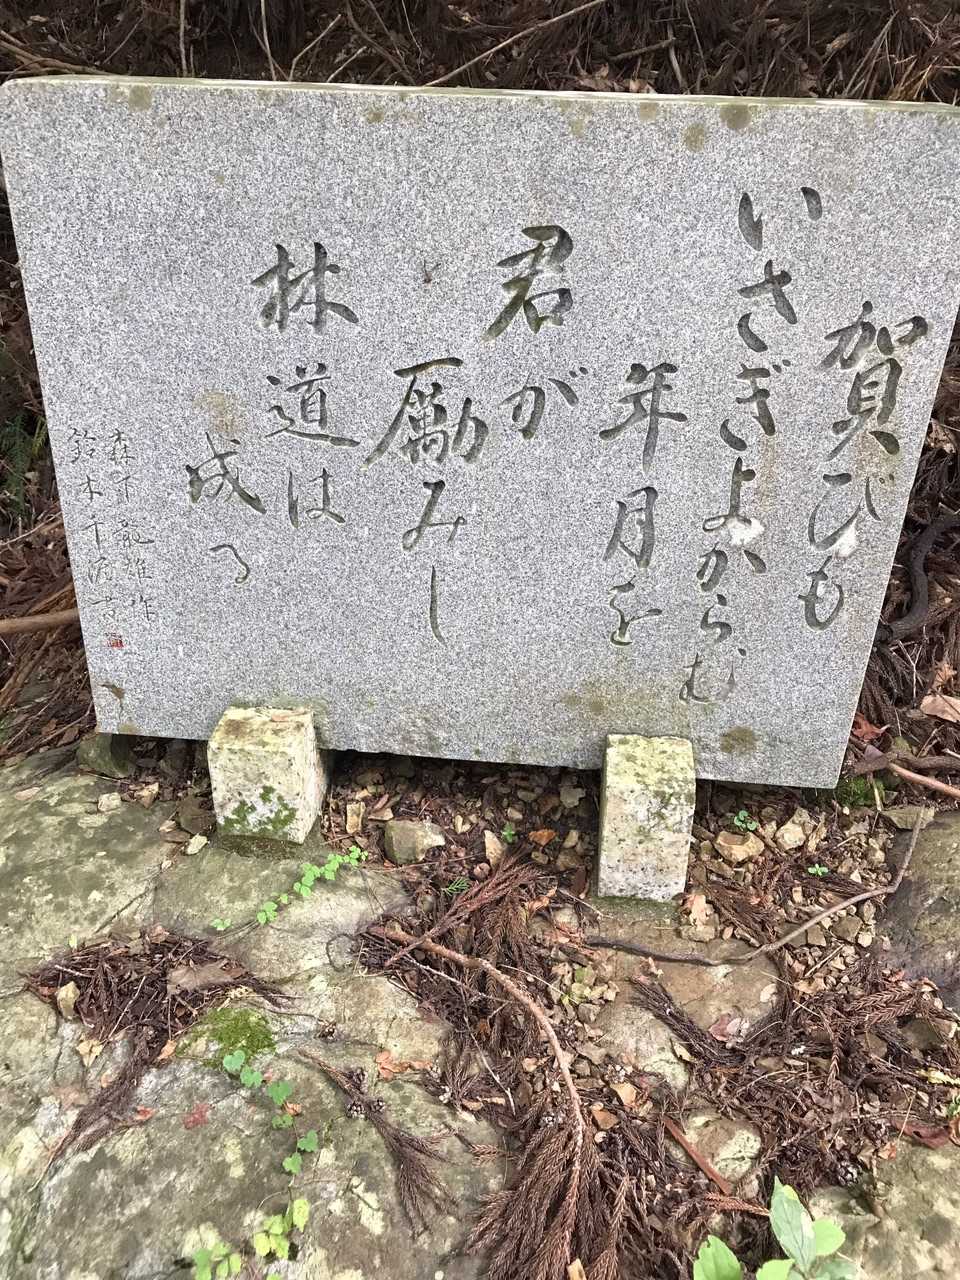 賀びも
いさぎよからむ
年月を
君が
勵みし
林道は
成る
森下龍雄作
鈴木千書